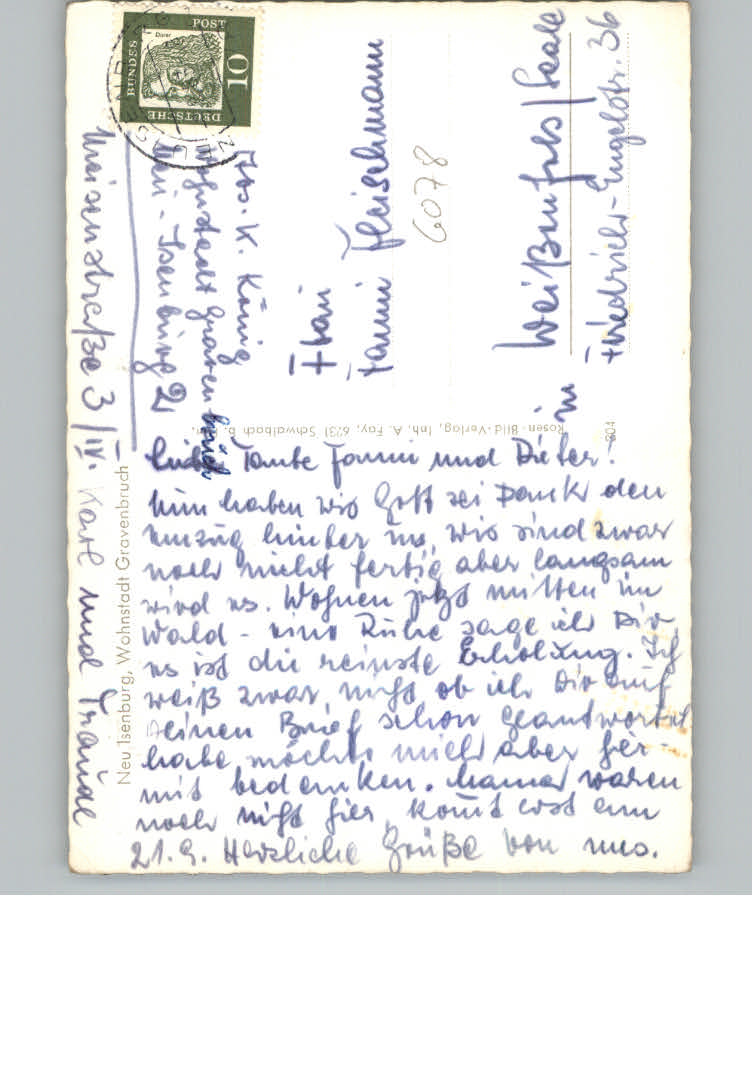 Liebe Tante Fanni und Dieter!
Nun haben wir Gott sei Dank den
Umzug hinter uns, wir sind zwar
noch nicht fertig aber langsam
wird es. Wohnen jetzt mitten im
Wald - eine Ruhe sage ich Dir
es ist die reinste Erholung. Ich
weiß zwar nicht ob ich Dir auf
Deinen Brief schon geantwortet
habe, möchte mich aber hier-
mit bedanken. Mama waren
noch nicht hier, kommt erst am
21.9. Herzliche Grüße von uns.
Karl und Traudl
Neu Isenburg, Wohnstadt Gravenbruch
Meisenstraße 3/IV.
Abs. K. König
Wohnstadt Gravenbruch
Neu-Isenburg 2
Rosen-Bild-Verlag, Inh. A. Fay, 6231 Schwalbach b.
804
DEUTSCHE
BUNDES
POST
10
Dürer
Frau
Fanni Fleischmann
6078
in
Weißenfels/Saale
Friedrich-Engelstr. 36